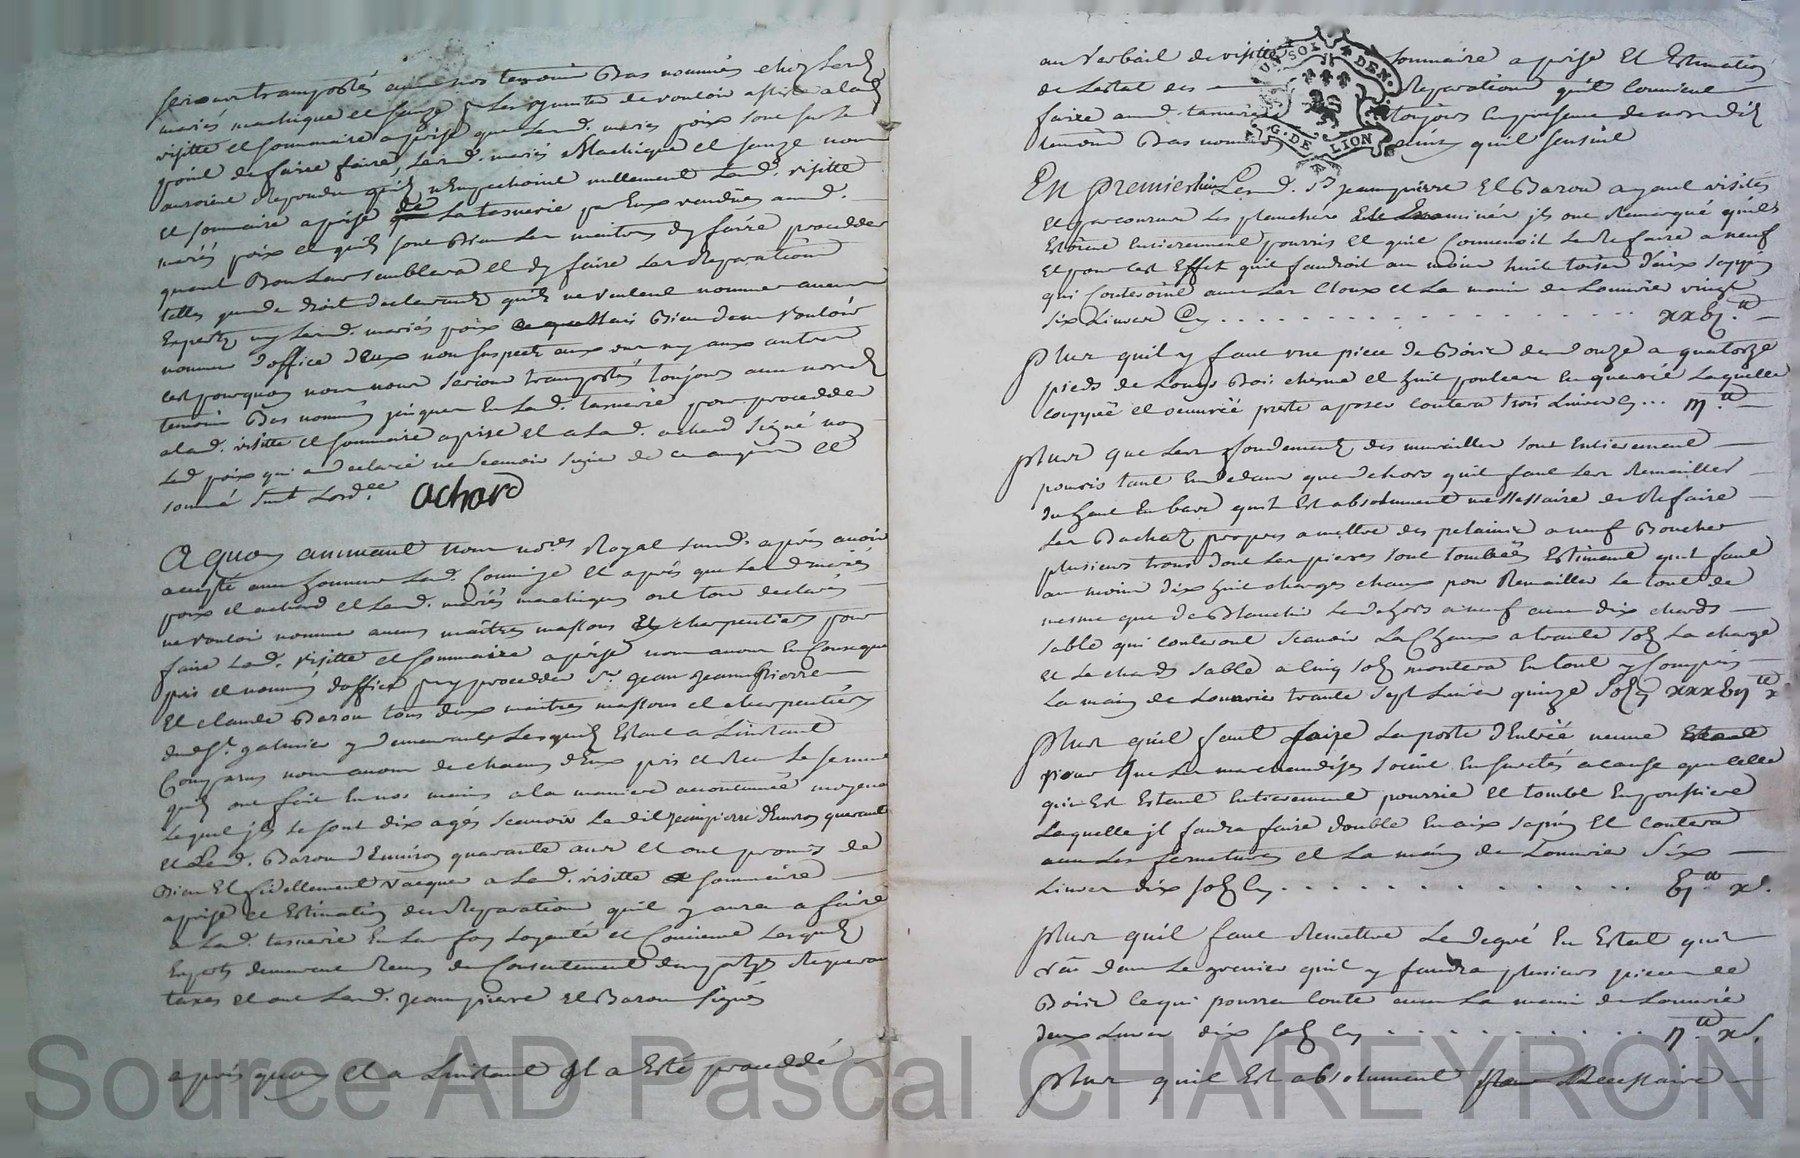 serions transportés avec nos temoins bas nommés chez lesd
mariés machique et sauze p. les requerir de vouloir assister a lad
visitte et sommaire aprise que lesd. mariés poix sont sur le
point de faire faire, lesd. mariés Machique et sauze nous
auroient repondu qu'ils n'Empechoient nullement lad. visitte
et sommaire aprise de la tannerie par Eux vendües aud.
mariés poix et quils sont bien les maitres d'y faire proceder
quant bon leur semblera et d'y faire les reparations
telles que de droit declarants qu'ils ne veulent nommer aucun
Experts ny lesd. mariés poix mais bien d'en vouloir
nommer d'office d'Eux non suspects aux uns ny aux autres
cest pourquoy nous nous serions transportés toujours avec nosd
temoins bas nommés jusques En lad. tannerie pour procedder
a lad. visitte et sommaire aprise et a lad. achard signé non
led poix qui a declaré ne scavoir signer de ce enquis et
sommé suivt Lord.ce achard
A quoy annuant nous no.res Royal susd. après avoir
accepté avec honneur lad. Commise et après que lesd mariés
poix et achard et lesd. mariés machiques ont tous declarés
ne vouloir nommer aucuns maîtres massons et charpentiers pour
faire lad. visitte et sommaire aprise nous avons En Conseque
pris et nommés d'office p. y procedder Sr. jean jeanpierre
Et claude Baron tous deux maitres massons et charpentiers
de St. galmier y demeurants Lesquels Estant a L'instant
Comparus nous avons de chacun d'Eux pris et reçu le serment
quils ont fait En nos mains a la maniere accoutumée moyena
Lequel jls se sont dix agés scavoir Ledit jeanpierre d'Environ quarante
et Led. Baron d'Environ quarante ans et ont promis de
bien Et fidellement vacquer a Lad. visitte et sommaire
aprise et Estimation des reparations quil y aura a faire
a Lad. tannerie En Leur foy Loyauté et Consience Lesquels
Experts demeurent Remy du Consentement des parties
taxes et ont Lesd. jeanpierre et Baron signés
après quoy et a Linstant Jl a Esté proceddé
au Verbail de visitte sommaire aprise Et Estimation
de Lestat des Reparations qu'il Convient
faire aud. tannerie toujours En presence de nosd
temoins Bas nommés ainsy quil sensuit
En premier lieu Lesd. Srs jeanpierre Et Baron ayant visités
et parcourus Les planchers Examinés jls ont Remarqué qu'ils
Estoient Entierement pourris et quil Convenoit Les Refaire a neuf
Et pour cet Effet quil faudroit au moins huit toises d'aix sappin
qui Couteroient avec Les Cloux et La main de Louvrier vingt
six Livres Cy . . . . . . . . . . . . xxvj.tt
plus quil y faut une piece de Bois de douze a quatorze
pieds de Long Bois chesne et huit pouces En quarré Laquelle
couppée et ouvrée preste a poser coutera trois Livres Cy ... iij.tt
plus que Les fondements des murailles sont Entierement
pouris tant En dedans que dehors quil faut Les Remailler
du haut En bas quil Est absolument nessessaire de Refaire
Les Bachats propres a mettre des pelains a neuf Boucher
plusieurs trous dont Les pieres sont tombées Estimant quil faut
au moins dix huit charges chaux pour Remailler Le tout de
mesme que de Blanchir Le dehors a neuf avec dix chards
sable qui couteront scavoir La Chaux a trante sols La charge
et Le chard sable a Cinq sols montera En tout y Compris
La main de Louvrier trante sept Livres quinze sols Cy xxxvij tt x
plus quil faut faire La porte d'Entrée neuve
pour que Les marchandises soient En surétés a cause que celle
qui Est Estant Entierement pourrie Et tombe En poussiere
Laquelle jl faudra faire double En aix sapin Et coutera
avec Les fermetures et La main de Louvrier six
Livres dix sols Cy . . . . . . . . . . . . vj.tt x s.
plus quil faut Remettre Le degré En Estat qui
va dans Le grenier quil y faudra plusieurs pieces de
Bois ce qui pourra Couter avec La main de Louvrier
deux Livres dix sols Cy . . . . . . . . . . ij.tt x s.
plus quil Est absolument Necessaire
G. DE LION
Source AD Pascal CHAREYRON